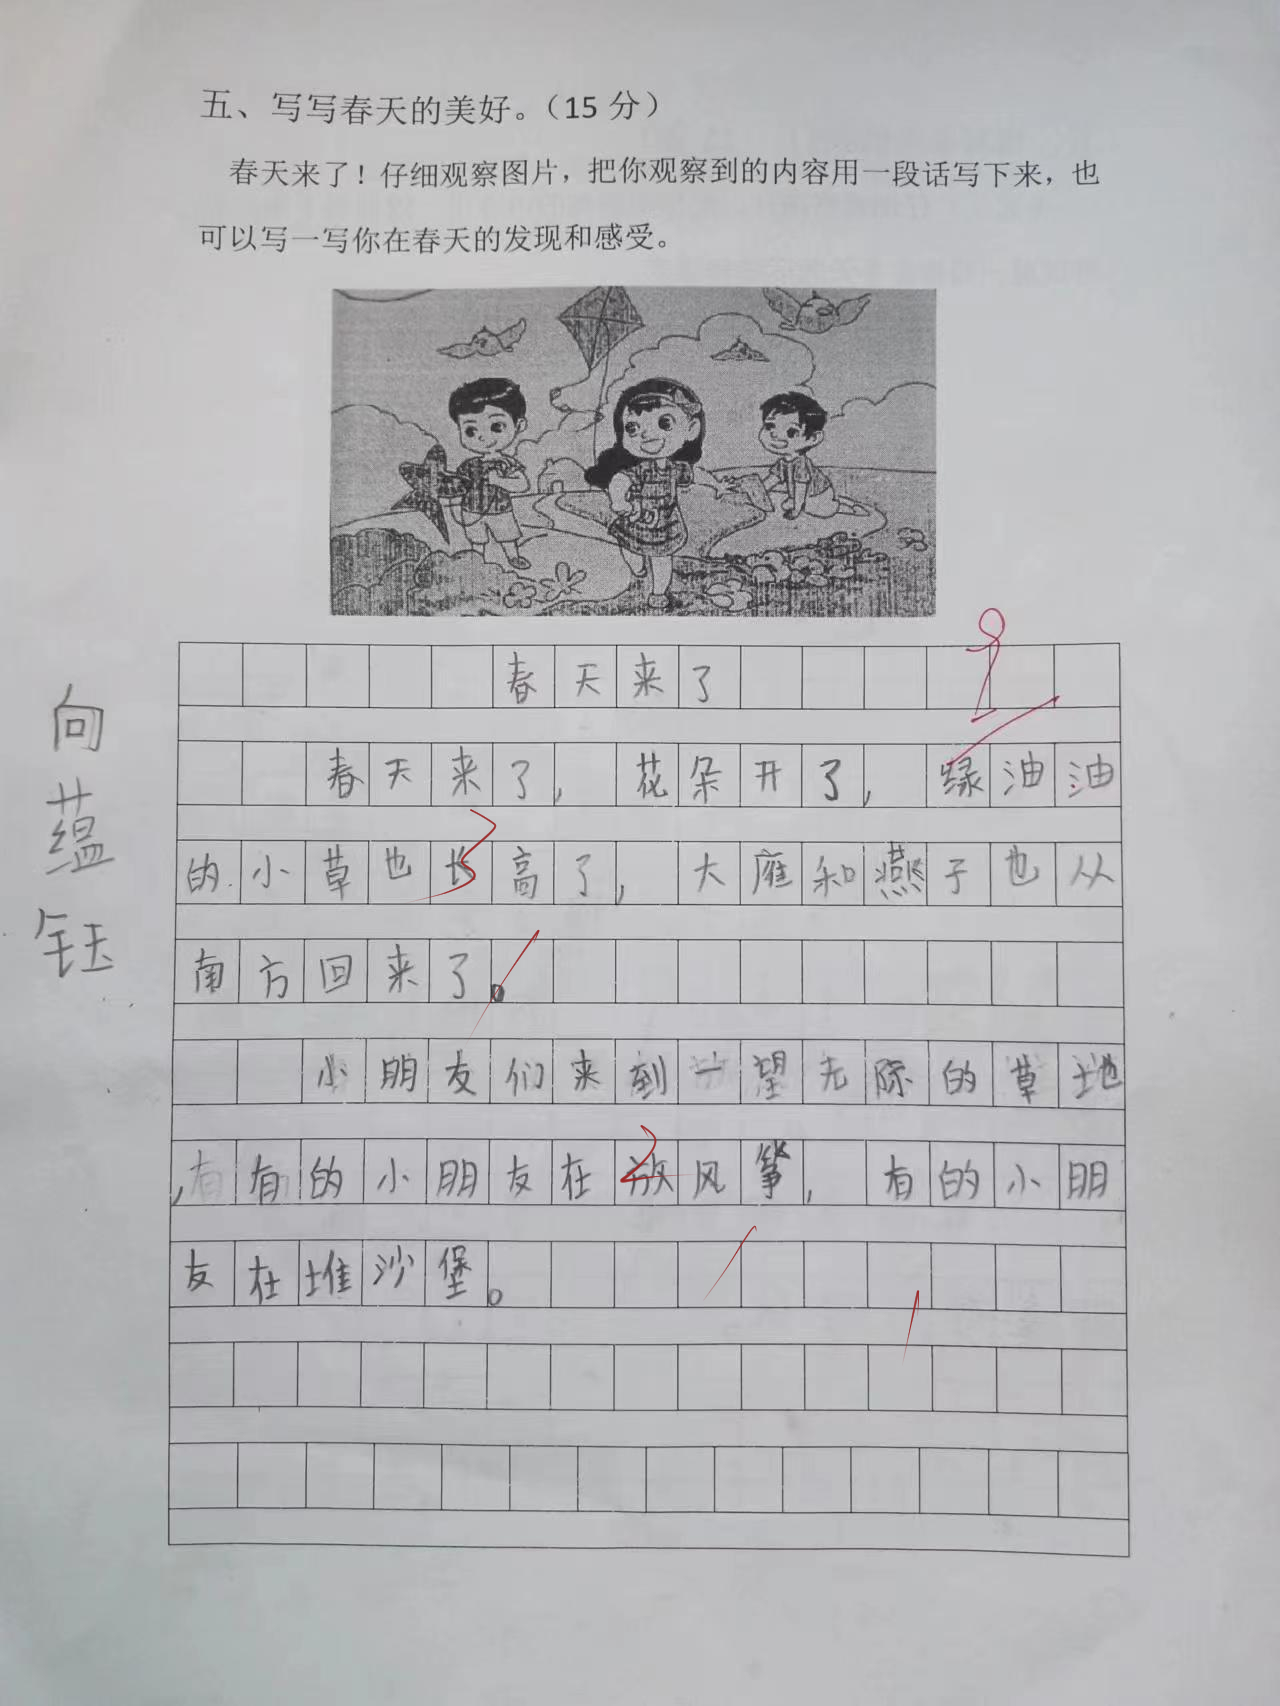 五、写写春天的美好。（15 分）
春天来了！仔细观察图片，把你观察到的内容用一段话写下来，也
可以写一写你在春天的发现和感受。
向蕴钰
春天来了
春天来了，花朵开了，绿油油
的小草也长高了，大雁和燕子也从
南方回来了。
小朋友们来到一望无际的草地
，有的小朋友在放风筝，有的小朋
友在堆沙堡。